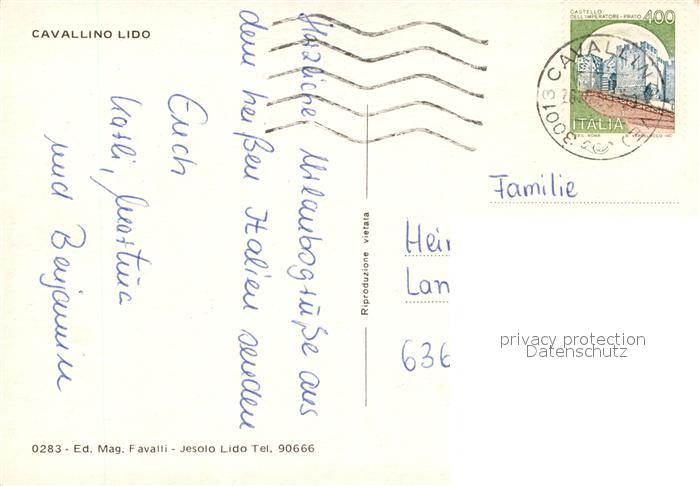 CAVALLINO LIDO
Herzliche Urlaubsgrüße aus
dem heißen Italien senden
Euch
Karli, Martina
und Benjamin
Riproduzione vietata
CASTELLO
DELL'IMPERATORE - PRATO 400
ITALIA
30013 CAVALLINO
Familie
Hei
Lan
636
privacy protection
Datenschutz
0283 - Ed. Mag. Favalli - Jesolo Lido Tel. 90666